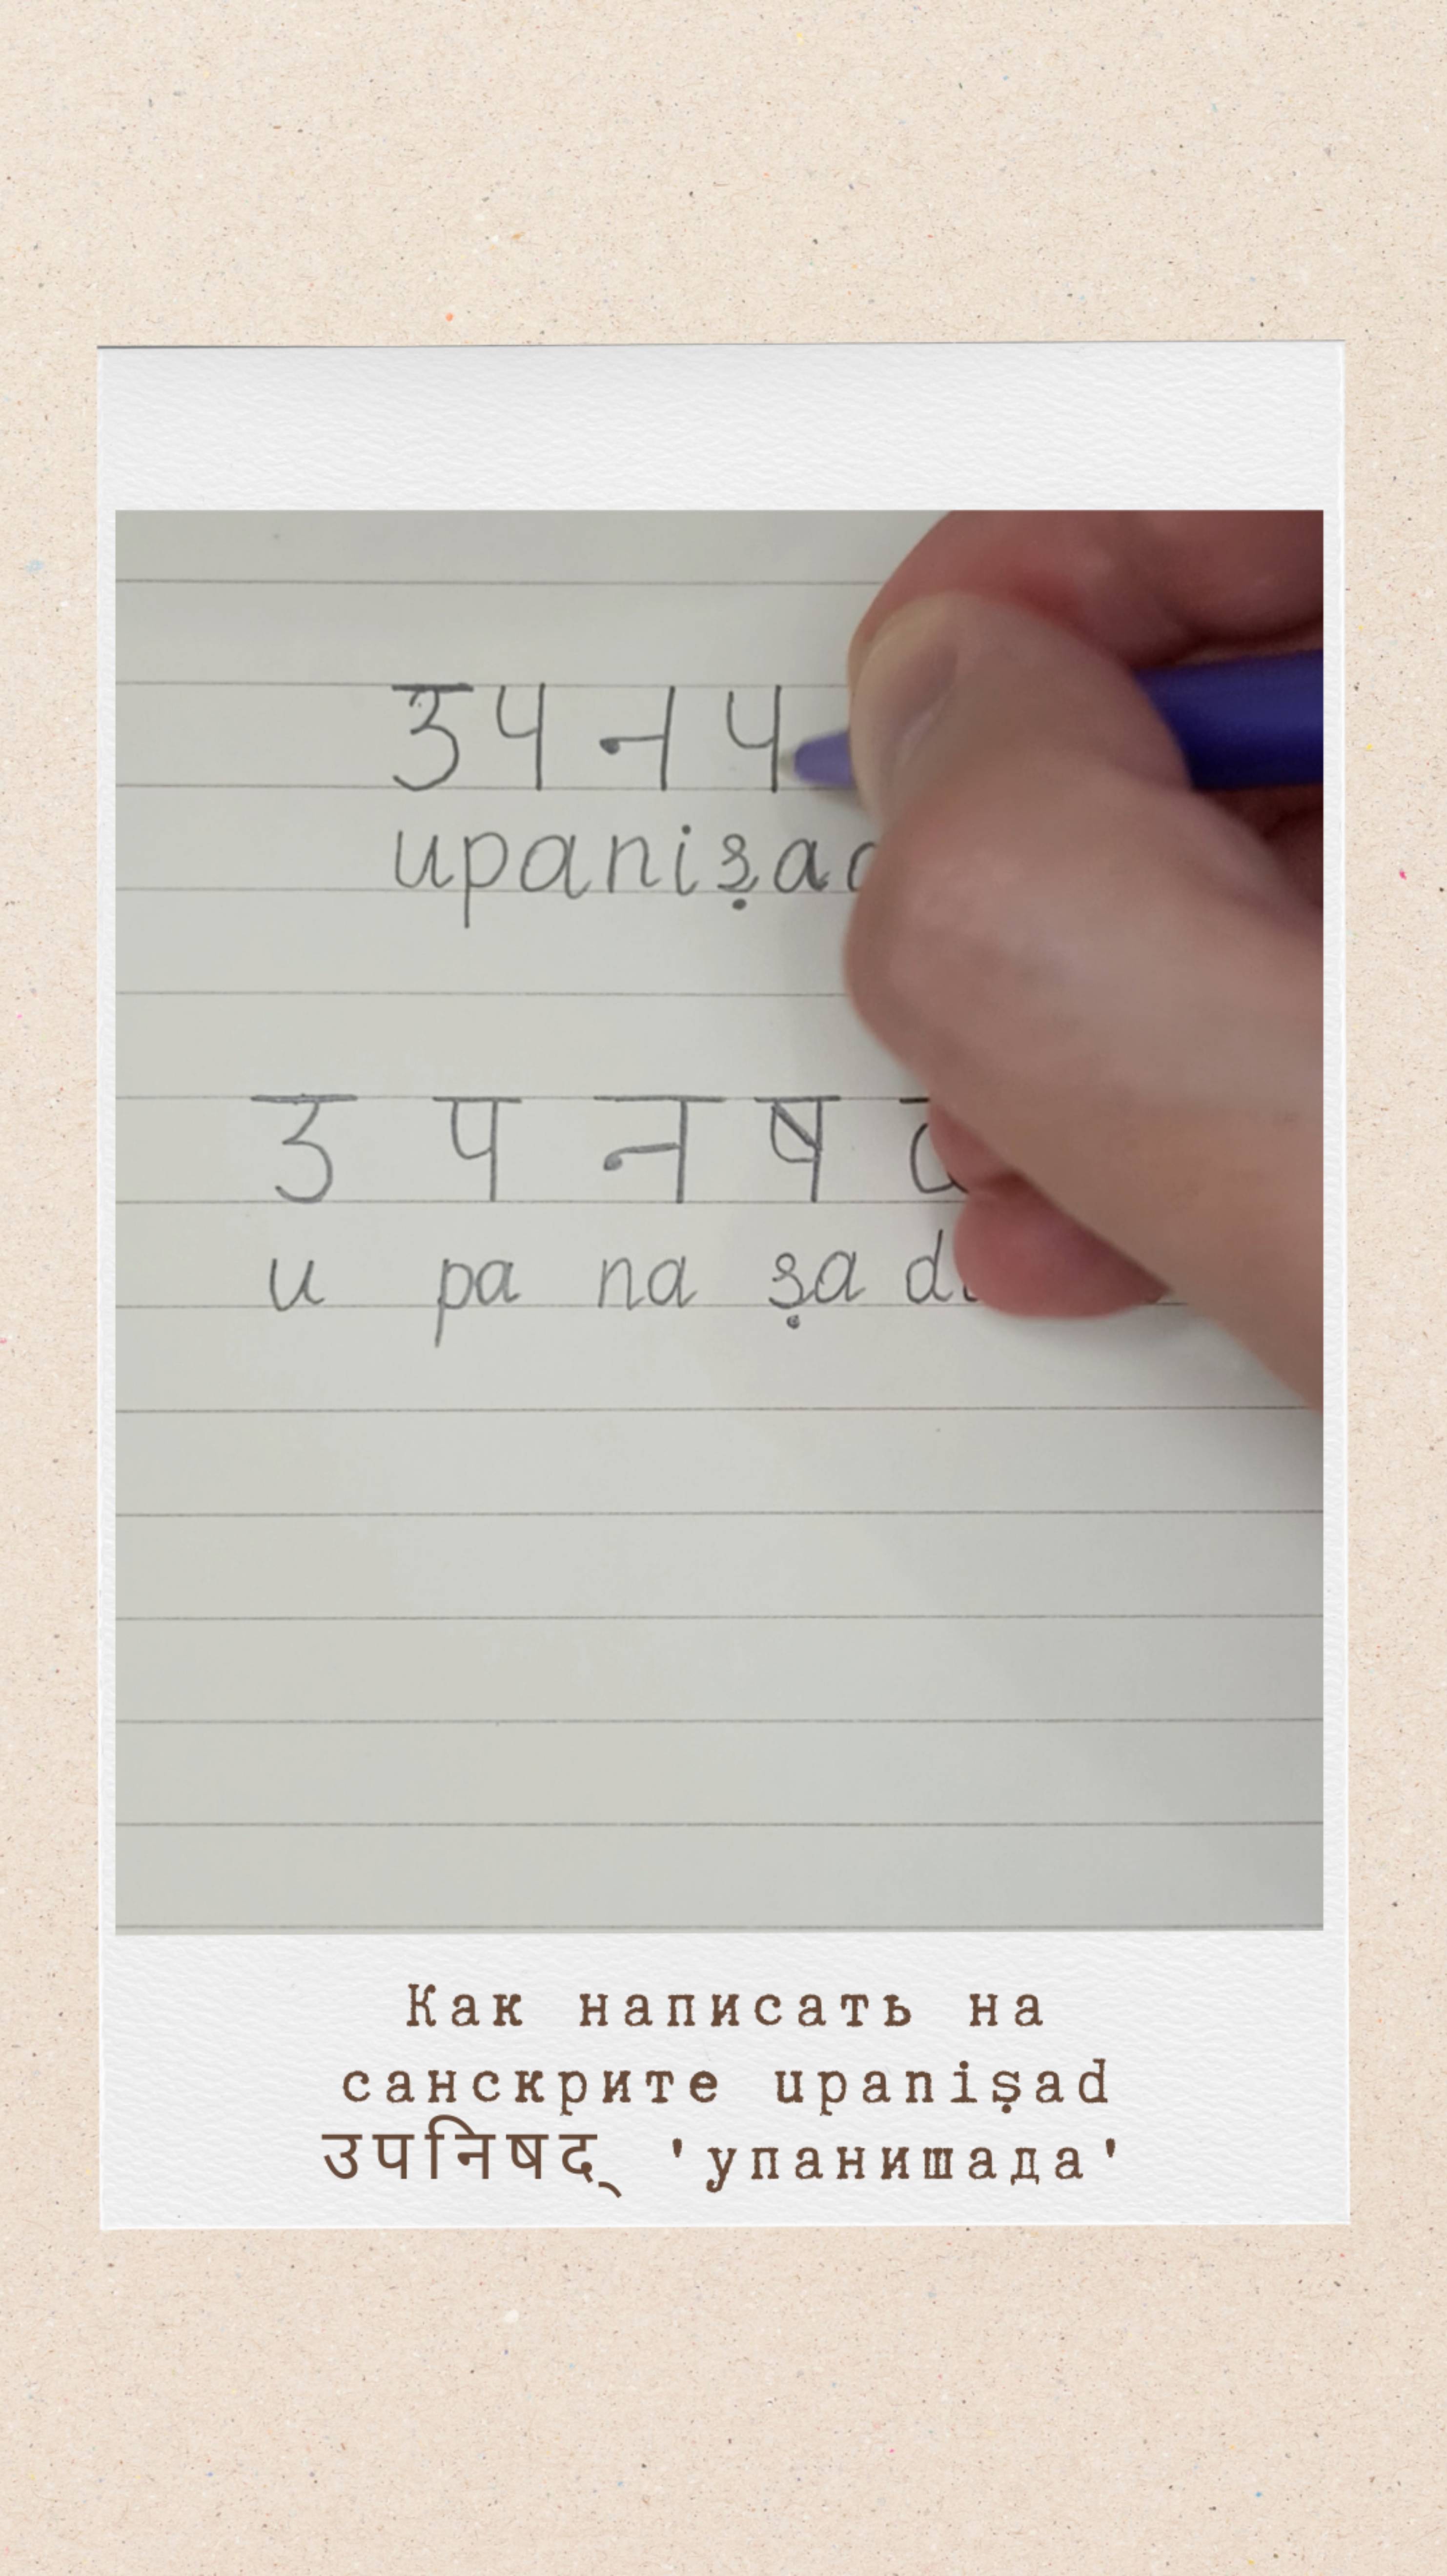 उ प न प
upaniṣad
उ प न ष द
u pa na ṣa da
Как написать на
санскрите upaniṣad
उपनिषद् 'упанишада'